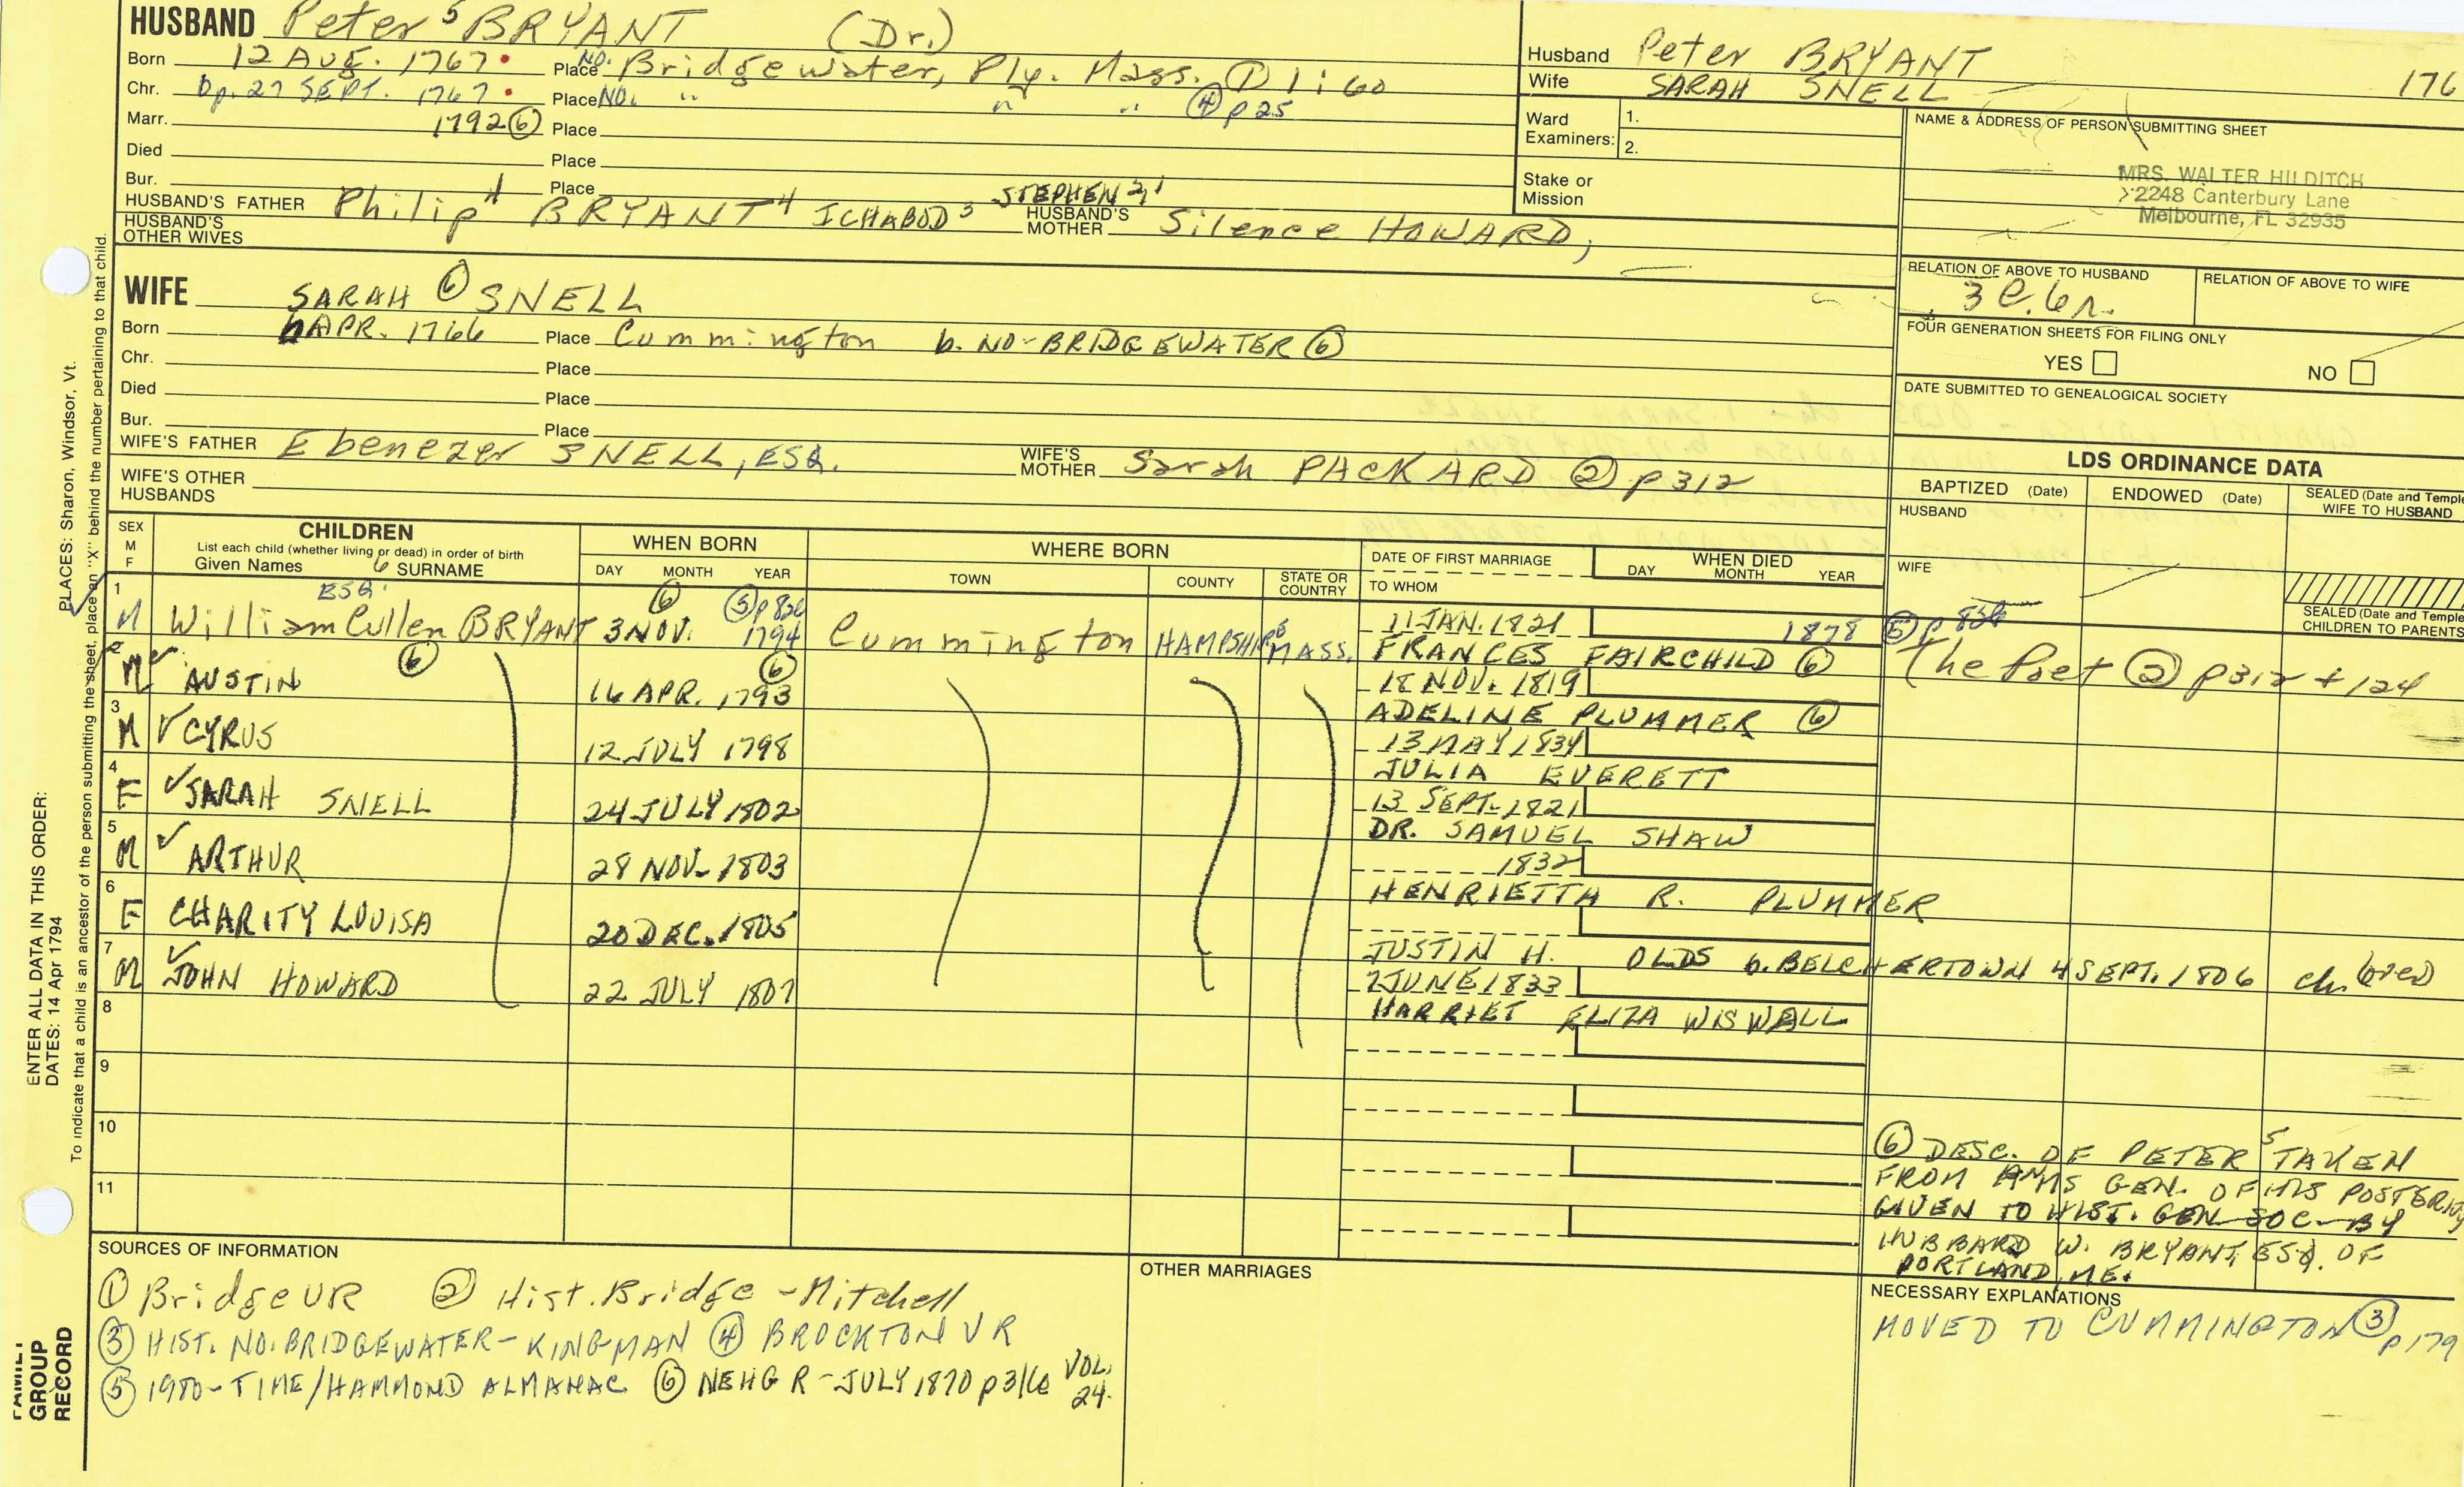 HUSBAND Peter 5 BRYANT (Dr.)
Born 12 AUG. 1767 Place NO. Bridgewater, Ply. Mass. ① 1:60
Chr. bp. 27 SEPT. 1767 Place NO. " " " ④ p 25
Marr. 1792 ⑥ Place
Died Place
Bur. Place
HUSBAND'S FATHER Philip 4 BRYANT 4 ICHABOD 3 STEPHEN 2,1 HUSBAND'S MOTHER Silence HOWARD,
HUSBAND'S OTHER WIVES
Husband Peter BRYANT
Wife SARAH SNELL 176
Ward Examiners: 1.
2.
Stake or Mission
NAME & ADDRESS OF PERSON SUBMITTING SHEET
MRS. WALTER HILDITCH
2248 Canterbury Lane
Melbourne, FL 32935
RELATION OF ABOVE TO HUSBAND RELATION OF ABOVE TO WIFE
3 C. 6 r.
FOUR GENERATION SHEETS FOR FILING ONLY
YES NO
DATE SUBMITTED TO GENEALOGICAL SOCIETY
WIFE SARAH ⑥ SNELL
Born 6 APR. 1766 Place Cummington b. NO-BRIDGEWATER ⑥
Chr. Place
Died Place
Bur. Place
WIFE'S FATHER Ebenezer SNELL, ESQ. WIFE'S MOTHER Sarah PACKARD ② p 312
WIFE'S OTHER HUSBANDS
LDS ORDINANCE DATA
BAPTIZED (Date) ENDOWED (Date) SEALED (Date and Temple
WIFE TO HUSBAND
HUSBAND
WIFE
SEALED (Date and Temple
CHILDREN TO PARENTS
SEX M F CHILDREN WHEN BORN WHERE BORN DATE OF FIRST MARRIAGE WHEN DIED
List each child (whether living or dead) in order of birth
Given Names 6 SURNAME DAY MONTH YEAR TOWN COUNTY STATE OR COUNTRY TO WHOM DAY MONTH YEAR
1 M William Cullen BRYANT ESQ. 3 NOV. ⑥ 1794 ⑤ p 826 Cummington HAMPSHIRE MASS. 11 JAN. 1821 1878 ⑤ p 826
FRANCES FAIRCHILD ⑥ The Poet ② p 312 + 124
2 M ✓ AUSTIN ⑥ 16 APR. 1793 ⑥ 18 NOV. 1819
ADELINE PLUMMER ⑥
3 M ✓ CYRUS 12 JULY 1798 13 MAY 1834
JULIA EVERETT
4 F ✓ SARAH SNELL 24 JULY 1802 13 SEPT. 1821
DR. SAMUEL SHAW
5 M ✓ ARTHUR 28 NOV. 1803 1832
HENRIETTA R. PLUMMER
6 F CHARITY LOUISA 20 DEC. 1805
JUSTIN H. OLDS b. BELCHERTOWN 4 SEPT. 1806
7 M ✓ JOHN HOWARD 22 JULY 1807 7 JUNE 1833
HARRIET ELIZA WISWALL
8
9
10
11
⑥ DESC. OF PETER 5 TAKEN
FROM A MS GEN. OF HIS POSTERITY
GIVEN TO HIST. GEN SOC. BY
HUBBARD W. BRYANT, ESQ. OF
PORTLAND, ME.
SOURCES OF INFORMATION
① Bridge VR ② Hist. Bridge - Mitchell
③ HIST. NO. BRIDGEWATER - KINGMAN ④ BROCKTON VR
⑤ 1980 - TIME/HAMMOND ALMANAC ⑥ NEHGR - JULY 1870 p 316 VOL. 24.
OTHER MARRIAGES
NECESSARY EXPLANATIONS
MOVED TO CUMMINGTON ③ p 179
PLACES: Sharon, Windsor, Vt.
ENTER ALL DATA IN THIS ORDER:
DATES: 14 Apr 1794
To indicate that a child is an ancestor of the person submitting the sheet, place an "X" behind the number pertaining to that child.
FAMILY GROUP RECORD